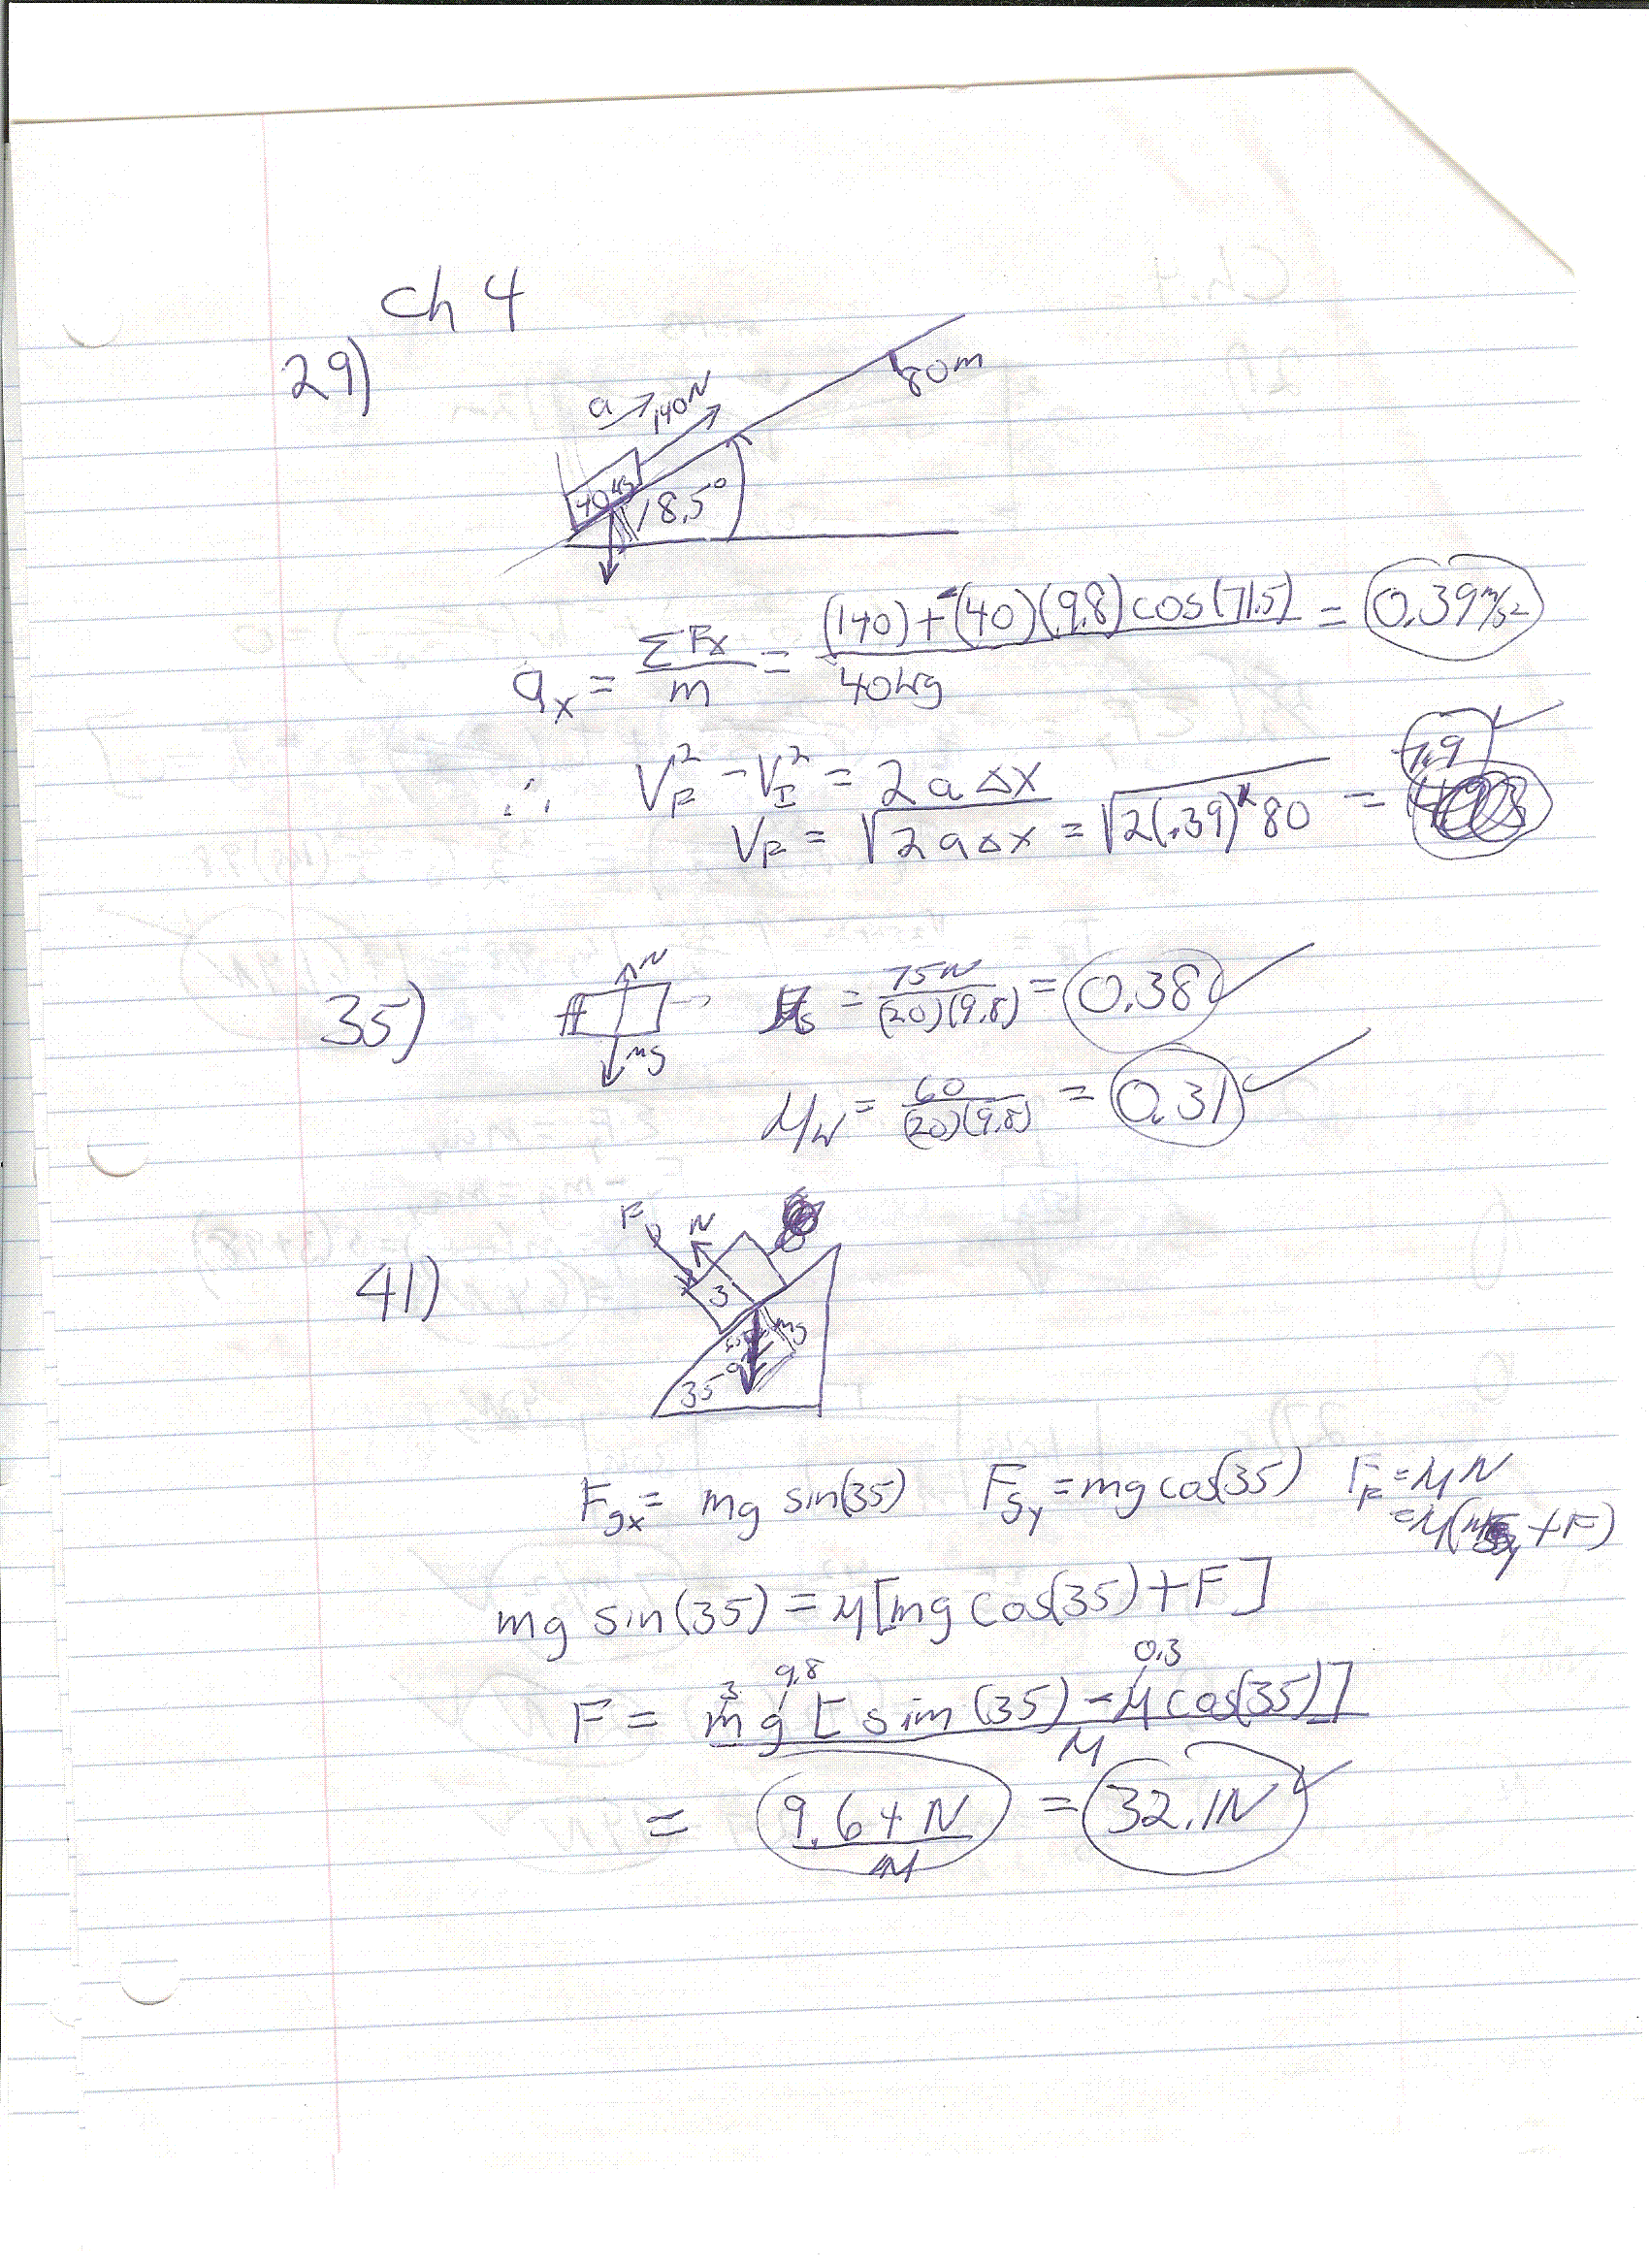 Ch 4
29)
a 140N 80m
40kg 18.5°
a_x = ΣF_x / m = (140)+-(40)(9.8)cos(71.5) / 40kg = 0.39 m/s²
∴ V_F² - V_I² = 2aΔX
V_F = √2aΔx = √2(.39)*80 = 7.9
35) N mg
μ_s = 75N / (20)(9.8) = 0.38 ✓
μ_k = 60 / (20)(9.8) = 0.31 ✓
41) F N
3 mg
35°
F_gx = mg sin(35) F_gy = mg cos(35) F_F = μN
= μ( +F)
mg sin(35) = μ[mg cos(35) + F]
3 9.8 0.3
F = mg[sin(35) - μcos(35)] / μ
= 9.64 N / μ = 32.1N ✓